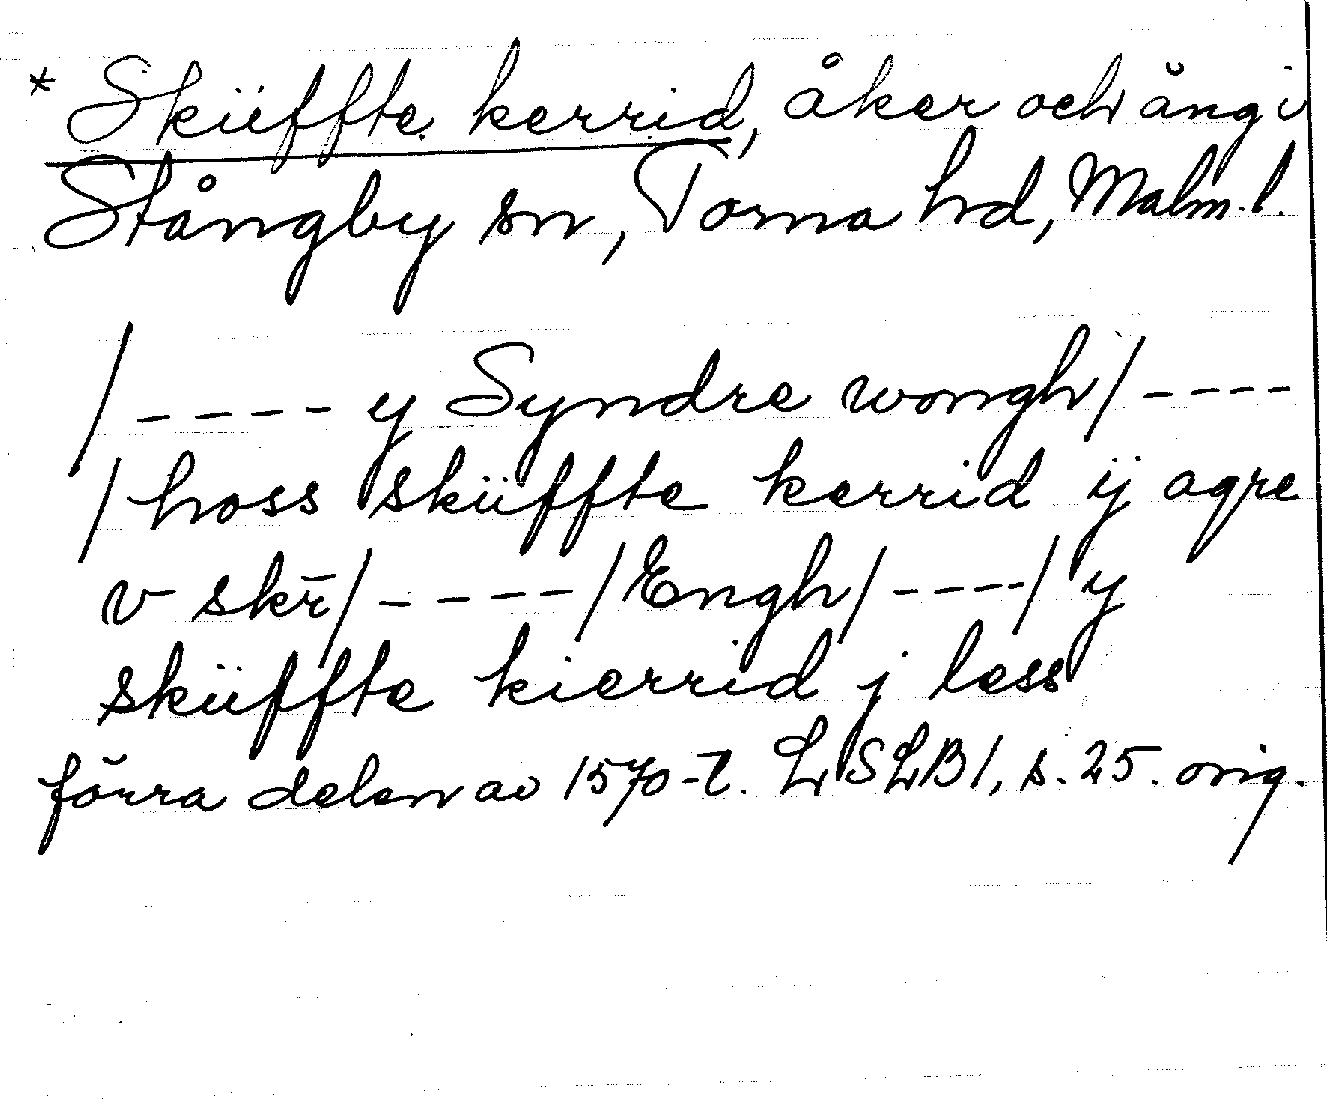 * Sküffte kerrid, åker och äng i
Stångby sn, Torna hd, Malm. l.
/---- y Syndre wongh/----
/hoss sküffte kerrid ÿ agre
v skr̄/----/Engh/----/ y
sküffte kierrid j less
förra delen av 1570-t. LSLB 1, s. 25. orig.